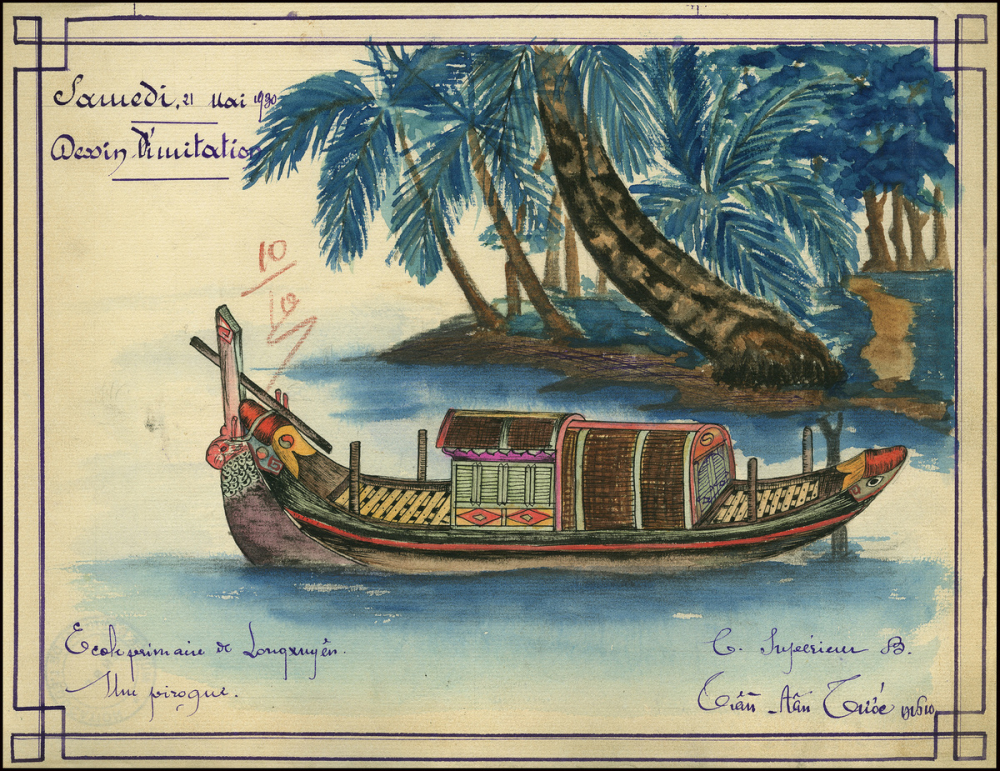 Samedi, 21 Mai 1930
Dessin d'imitation
10
10
Ecole primaire de Longxuyên.
Une pirogue.
C. Supérieur B.
Trần Tấn